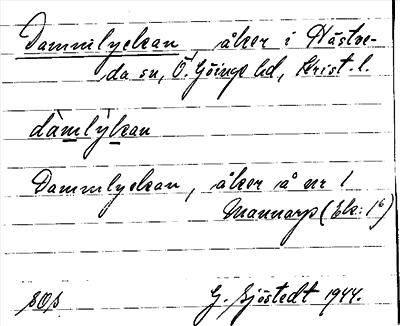 Dammlyckan, åker i Hästve-
da sn, Ö. Göinge hd, Krist. l.
dàmlýkan
Dammlyckan, åker å nr 1
Mannarp (Ek: 16)
SOS G. Sjöstedt 1944.